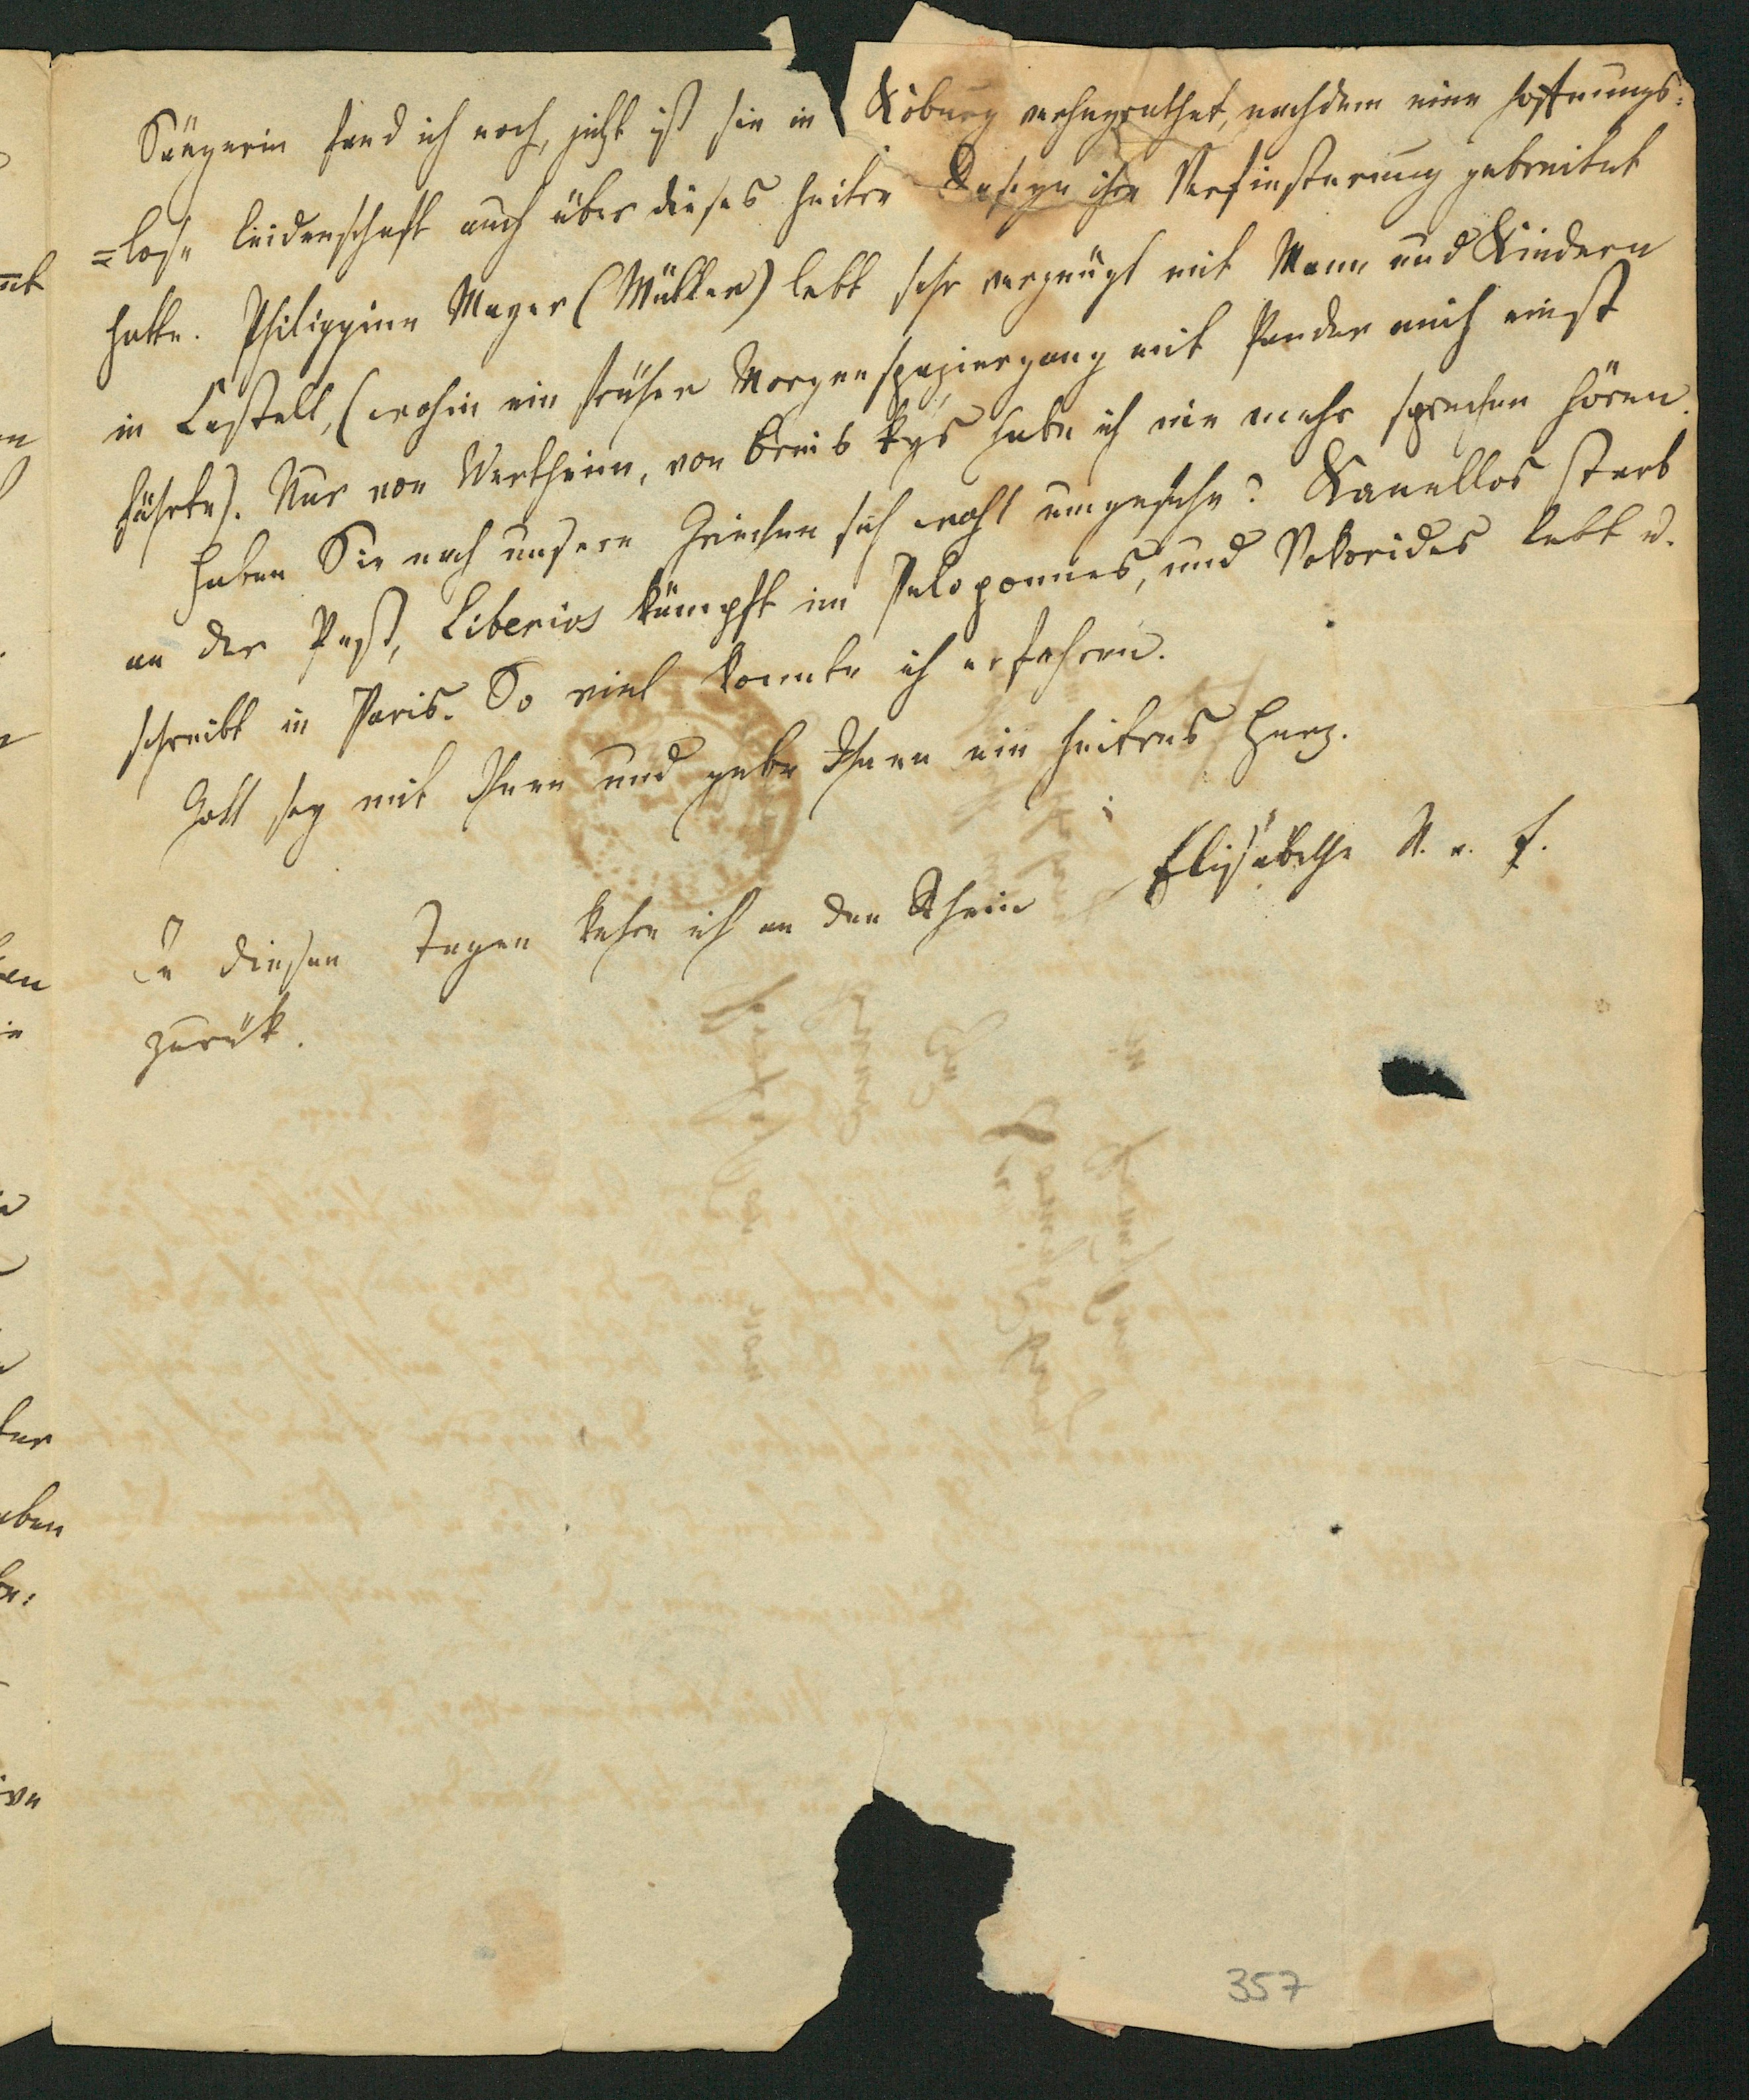 Sängerin fand ich noch, jetzt ist sie in Koburg verheyrathet, nachdem eine hoffnungs:
=lose Leidenschaft auch über dieses heitre Daseyn ihre Verfinsterung gebreitet
hatte. Philippine Mayer (Müller) lebt sehr vergnügt mit Mann und Kindern
in Castell, (wohin ein früher Morgenspaziergang mit Pander mich einst
führte). Nur von Wertheim, von habe ich nie mehr sprechen hören.
Haben Sie nach unsern Griechen sich wohl umgesehn? Kanellos starb
an der Pest, Liberios kämpft im Peloponnes, und lebt u.
schreibt in Paris. So viel konnte ich erfahren.
Gott sey mit Ihnen und gebe Ihnen ein heitres Herz.
Elisabethe N. v. E.
In diesen Tagen kehre ich an den Rhein
zurük.
357